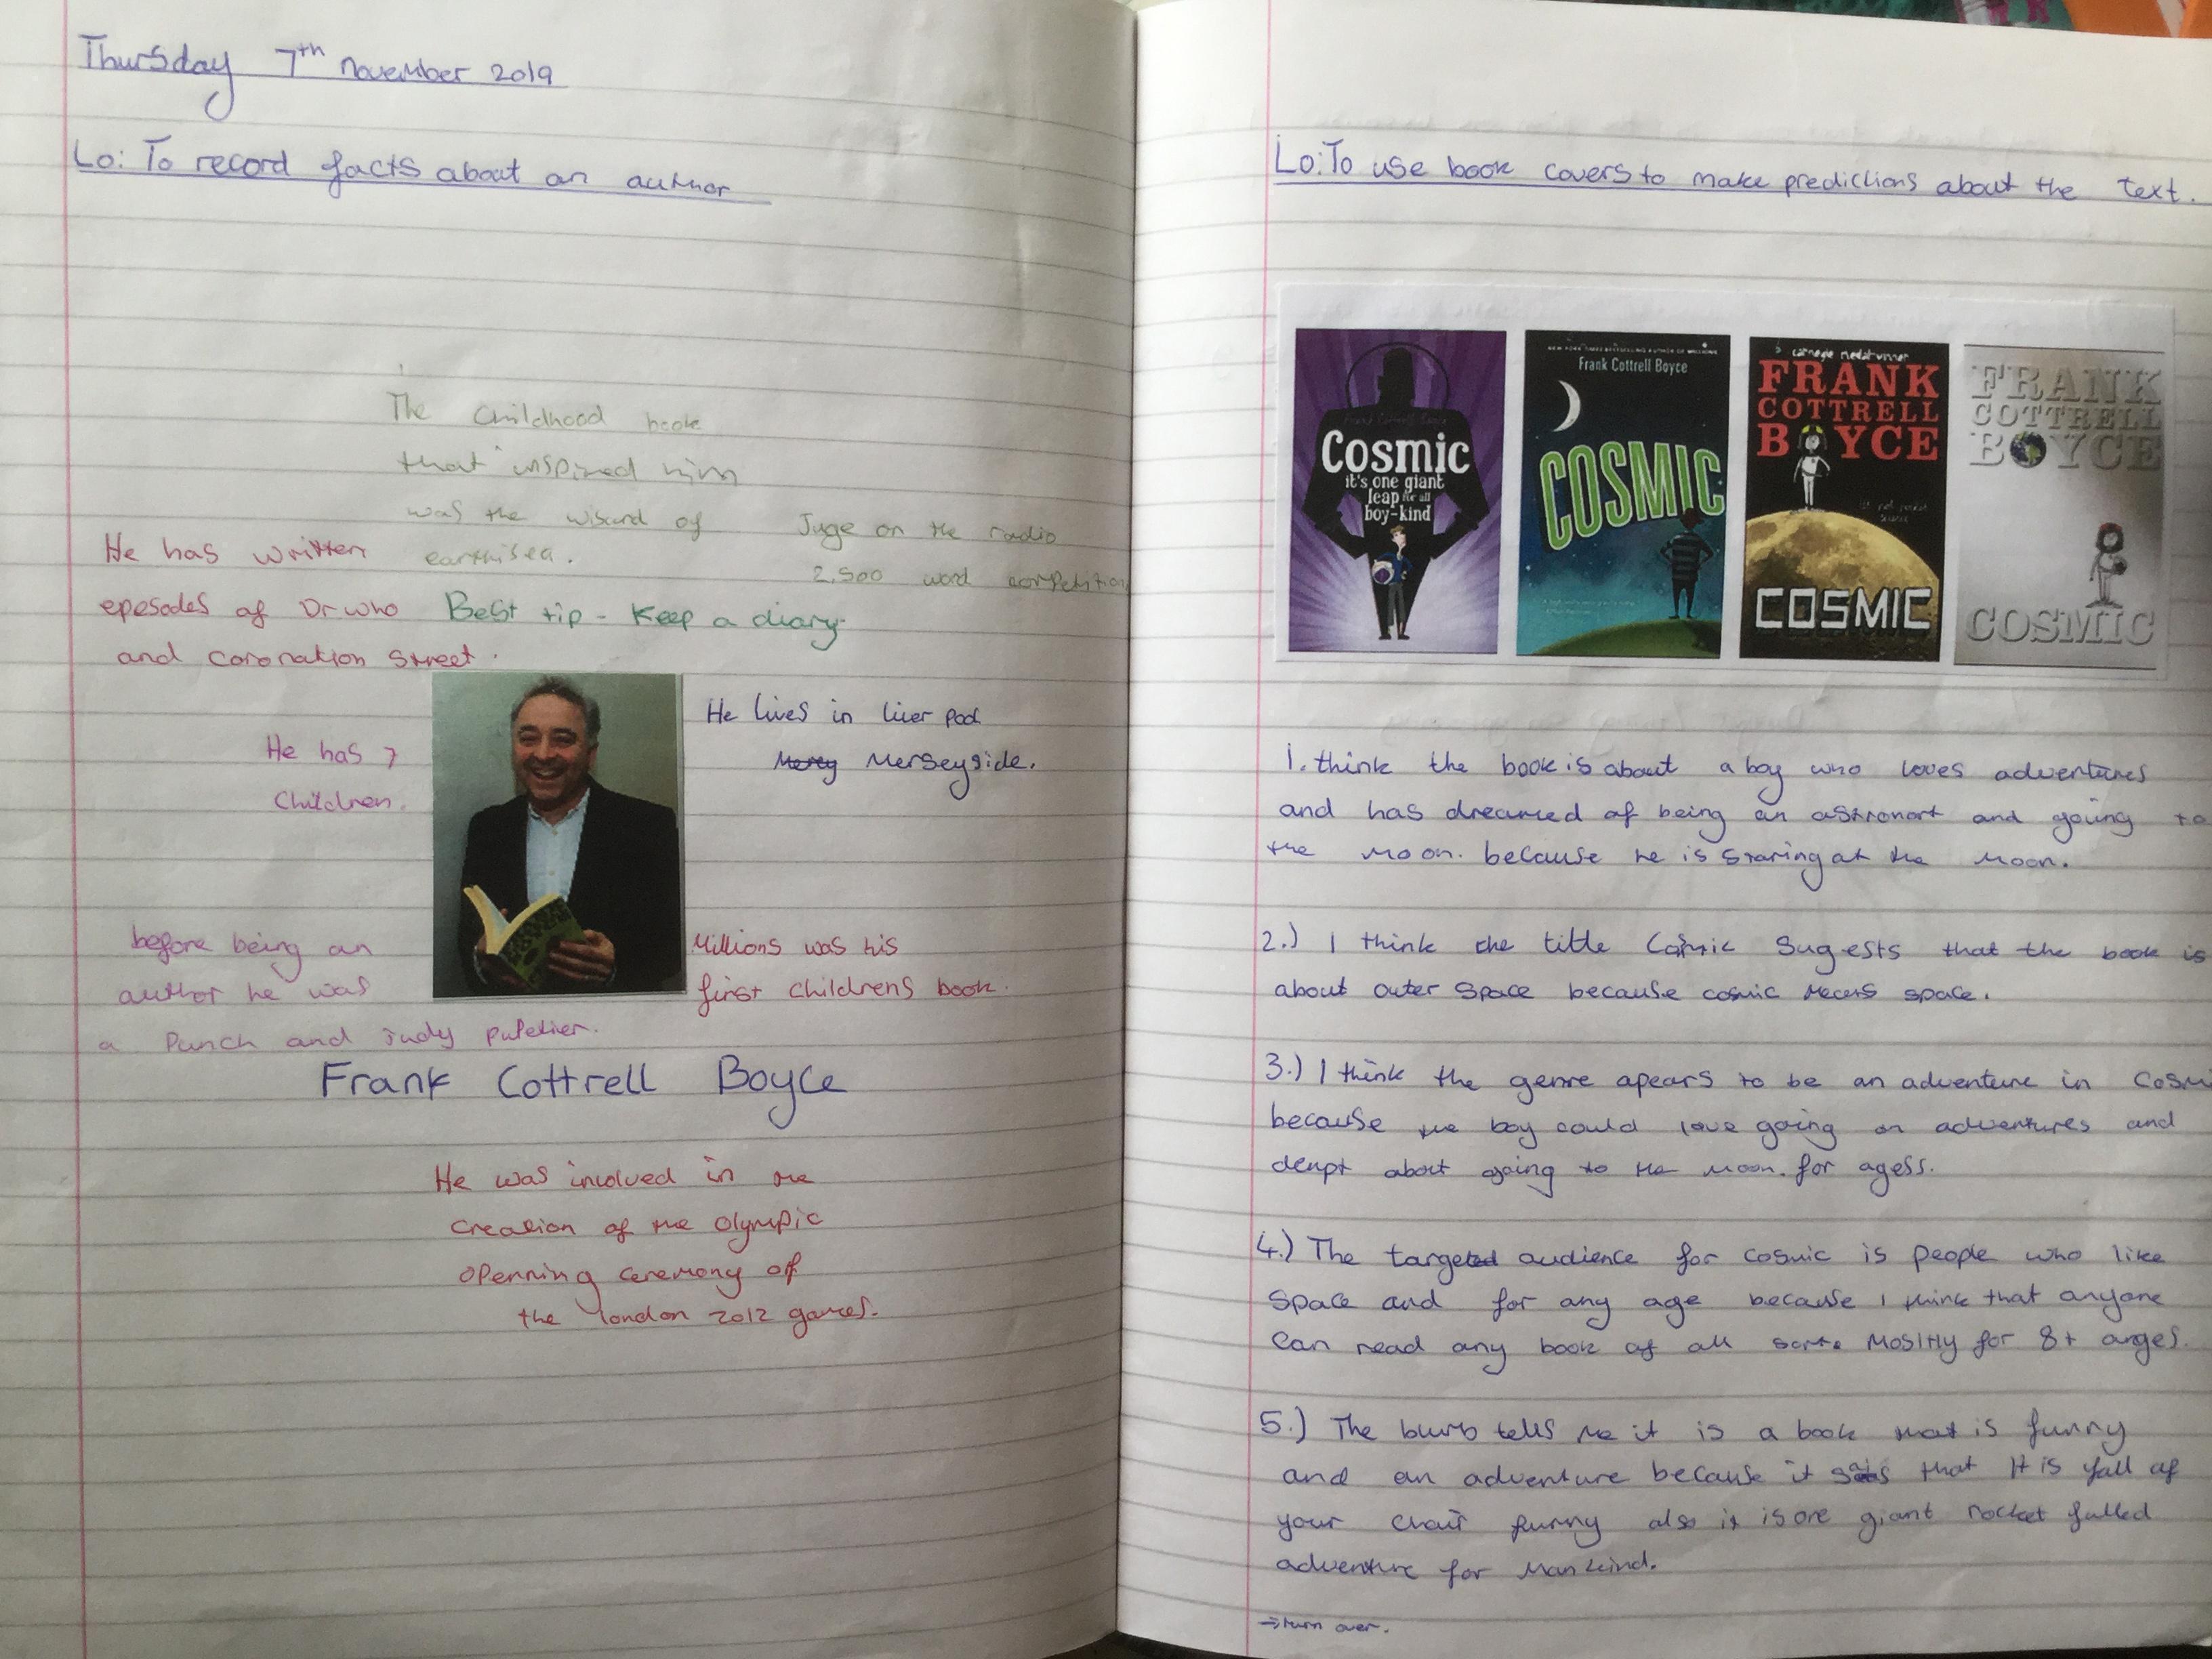 Thursday 7th november 2019
Lo: To record facts about an author
The childhood book
that inspired him
was the wisard of
earthisea.
Juge on the radio
2,500 word competition
He has written
epesodes of Dr who
and coronation street.
Best tip - Keep a diary
He lives in liver pool
Mersey Merseyside.
He has 7
Children.
before being an
author he was
a Punch and judy pupetier.
Millions was his
first childrens book.
Frank Cottrell Boyce
He was involved in the
creation of the Olympic
openning ceremony of
the london 2012 games.
Lo: To use book covers to make predictions about the text.
Cosmic
it's one giant
leap for all
boy-kind
NEW YORK TIMES BESTSELLING AUTHOR OF MILLIONS
Frank Cottrell Boyce
COSMIC
carnegie medal winner
FRANK
COTTRELL
BOYCE
it's not rocket
science
COSMIC
FRANK
COTTRELL
BOYCE
COSMIC
1. think the book is about a boy who loves adventures
and has dreamed of being an astronort and going to
the moon. because he is staring at the moon.
2.) I think the title Cosmic sugests that the book is
about outer space because cosmic means space.
3.) I think the genre apears to be an adventure in Cosmi
because the boy could love going on adventures and
about going to the moon. for agess.
4.) The targeted audience for cosmic is people who like
space and for any age because I think that anyone
can read any book of all sorts Mostly for 8+ anges.
5.) The blurb tells me it is a book that is funny
and an adventure because it says that It is fall of
your chair funny also it is one giant rocket fulled
adventure for Mankind.
→turn over.